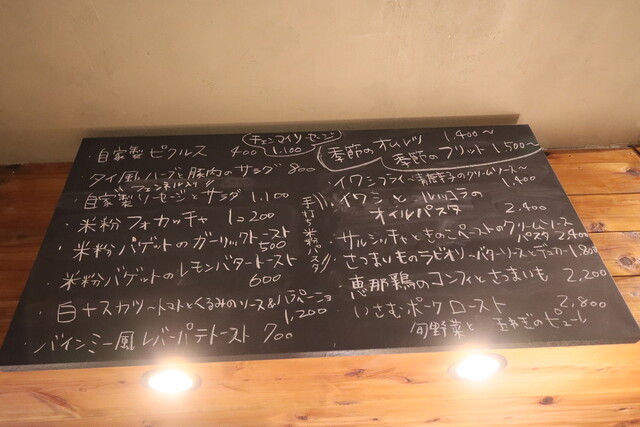 チェンマイソーセージ 1,100
・自家製ピクルス 400
タイ風ハーブと豚肉のサラダ 800
フェンネル入り
・自家製ソーセージとサラダ 1,100
・米粉フォカッチャ 1コ200
・米粉バゲットのガーリックトースト
500
・米粉バゲットのレモンバタートースト
600
・白ナスカツ〜トマトとくるみのソース&ハラペーニョ
1,200
・バインミー風レバーパテトースト 700
手打ち米粉パスタ
季節のオムレツ 1,400〜
季節のフリット 1,500〜
・イワシフライ〜 のクリームソース〜
1,400
・イワシとルッコラの
オイルパスタ
2,400
・サルシッチャときのこペーストのクリームソース
パスタ 2,400
・さつまいものラビオリ〜バターソースと 1,800
・恵那鶏のコンフィとさつまいも 2,200
・いさむポークロースト 2,800
旬野菜と 玉ねぎのピューレ